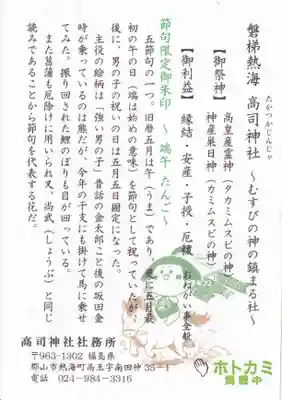 たかつかじんじゃ
磐梯熱海 高司神社 ～むすびの神の鎮まる社～
【御祭神】
高皇産霊神（タカミムスビの神）
神産巣日神（カミムスビの神）
【御利益】
縁結・安産・子授・厄祓 おねがい事全般
節句限定御朱印 ～ 端午 たんご～
五節句の一つ。旧暦五月は午（うま）であり、更に五月最
初の午の日（端は始めの意味）を節句として祝っていたが、
後に、男の子の祝いの日は五月五日固定になった。
主役の絵柄は「強い男の子」昔話の金太郎こと後の坂田金
時が乗っているのは熊だが、今年の干支にも掛けて馬に乗せ
てみた。振り回された鯉のぼりも目が回っている。
また菖蒲も厄除けに用いられ又、尚武（しょうぶ）と同じ
読みであることから節句を代表する花だ。
高司神社社務所
〒963-1302 福島県
郡山市熱海町高玉字南田仲35-4
電話 024-984-3316
ホトカミ
掲載中